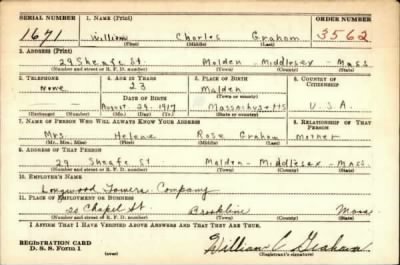 SERIAL NUMBER 1. NAME (Print) ORDER NUMBER
1671 William Charles Graham 3562
(First) (Middle) (Last)
2. ADDRESS (Print)
29 Sheafe St. Malden - Middlesex - Mass.
(Number and street or R. F. D. number) (Town) (County) (State)
3. TELEPHONE 4. AGE IN YEARS 5. PLACE OF BIRTH 6. COUNTRY OF CITIZENSHIP
None 23 Malden
DATE OF BIRTH (Town or county)
August 29, 1917 Massachusetts U.S.A.
(Exchange) (Number) (Mo.) (Day) (Yr.) (State or country)
7. NAME OF PERSON WHO WILL ALWAYS KNOW YOUR ADDRESS 8. RELATIONSHIP OF THAT PERSON
Mrs. Helene Rose Graham mother
(Mr., Mrs., Miss) (First) (Middle) (Last)
9. ADDRESS OF THAT PERSON
29 Sheafe St Malden - Middlesex - Mass.
(Number and street or R. F. D. number) (Town) (County) (State)
10. EMPLOYER'S NAME
Longwood Towers Company
11. PLACE OF EMPLOYMENT OR BUSINESS
20 Chapel St. Brookline Mass
(Number and street or R. F. D. number) (Town) (County) (State)
I AFFIRM THAT I HAVE VERIFIED ABOVE ANSWERS AND THAT THEY ARE TRUE.
REGISTRATION CARD
D. S. S. Form 1 (over) William C Graham
(Registrant's signature)